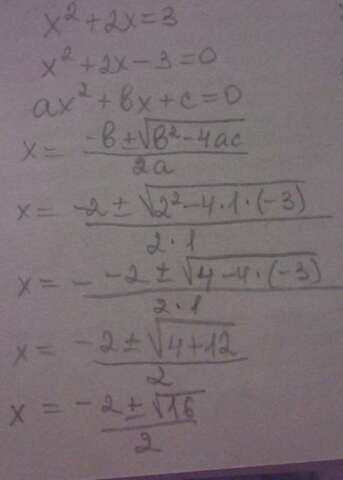 x² + 2x = 3
x² + 2x - 3 = 0
ax² + bx + c = 0
x = (-b ± √(b² - 4ac)) / 2a
x = (-2 ± √(2² - 4·1·(-3))) / 2·1
x = - (-2 ± √(4 - 4·(-3))) / 2·1
x = (-2 ± √(4 + 12)) / 2
x = (-2 ± √16) / 2